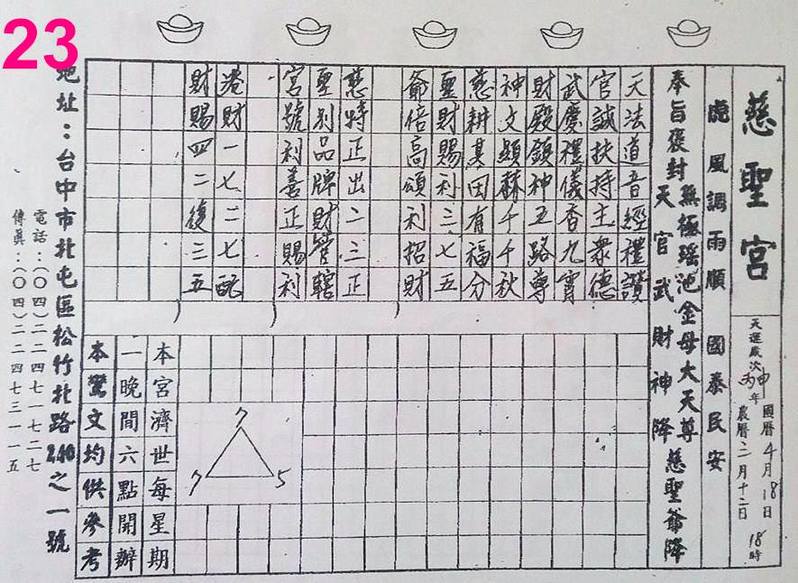 23
慈聖宮
天運歲次丙申年
國曆4月18日18時
農曆三月十二日
虎風調雨順 國泰民安
奉旨褒封
無極瑤池金母大天尊
天官武財神降
慈聖爺降
天法道音經禮讚
官誠扶持主眾德
武慶禮儀香九霄
財殿領神五路尊
神文顯赫千千秋
慈耕其田有福分
聖財賜利三七五
爺倍高頌利招財
慈特正出二三正
聖別品牌財管轄
宮號利善正賜利
港財一七二七配
財賜四二復三五
7
7
5
本宮濟世每星期
一晚間六點開辦
本鸞文均供參考
地址:台中市北屯區松竹北路240之一號
電話:(〇四)二二四七一七二七
傳真:(〇四)二二四七三一一五